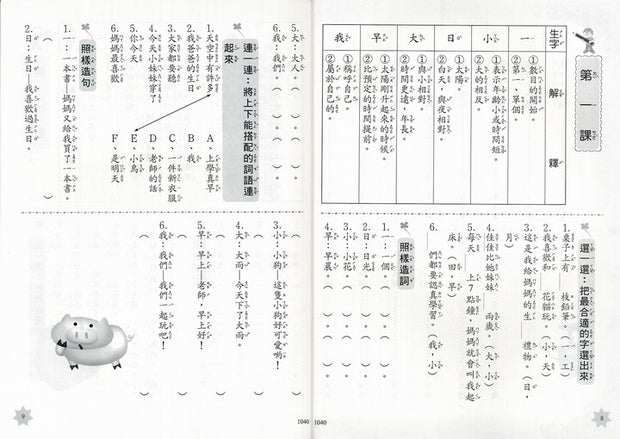 第一課
生字 解釋
一 ①數目的開始。
②第一,單個。
小 ①表示年齡小或時間短。
②大的相反。
日 ①太陽。
②白天,與夜相對。
大 ①與小相對。
②時間更遠,年長。
早 ①太陽剛升起來的時候。
②比預定的時間提前。
我 ①稱呼自己。
②屬於自己的。
選一選:把最合適的字選出來
1.桌子上有 枝鉛筆。(一,工)
2.我喜歡和 花貓玩。(小,天)
3.這是我給媽媽的生 禮物。(日,月)
4.佳佳比她妹妹 兩歲。(大,小)
5.每天 上7點鐘,媽媽就會叫我起床。(田,早)
6. 們都要認真學習。(我,小)
照樣造詞
1.一:一個。( )。( )。
2.日:日光。( )。( )。
3.小:小花。( )。( )。
4.早:早晨。( )。( )。
8
1040
5.大:大人。( )。( )。
6.我:我們。( )。( )。
連一連:將上下能搭配的詞語連起來
1.天空中有許多 A、上學真早
2.我爸爸的生日 B、我
3.大家都要聽 C、一件新衣服
4.今天小妹妹穿了 D、老師的話
5.你今天 E、小鳥
6.媽媽最喜歡 F、是明天
照樣造句
1.一:一本書—媽媽又給我買了一本書。
( )
2.日:生日—我喜歡過生日。
( )
3.小:小狗—這隻小狗好可愛喲!
4.大:大雨—今天下了大雨。
5.早:早上—老師,早上好!
6.我:我們—我們一起玩吧!
9
1040